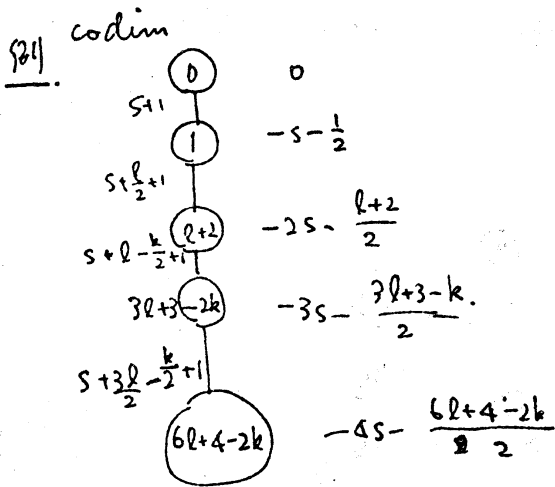 codim
§21.
0 0
s+1
1 -s-\frac{1}{2}
s+\frac{l}{2}+1
l+2 -2s-\frac{l+2}{2}
s+l-\frac{k}{2}+1
3l+3-2k -3s-\frac{3l+3-k}{2}.
s+\frac{3l}{2}-\frac{k}{2}+1
6l+4-2k -4s-\frac{6l+4-2k}{2}